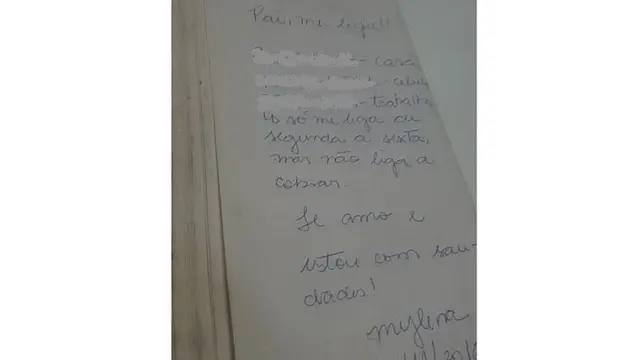 Pai, me liga!!
- casa
- celul
- trabalho
↳ só me liga de
segunda a sexta,
mas não liga a
cobrar.
Te amo e
estou com sau-
dades!
Mylena